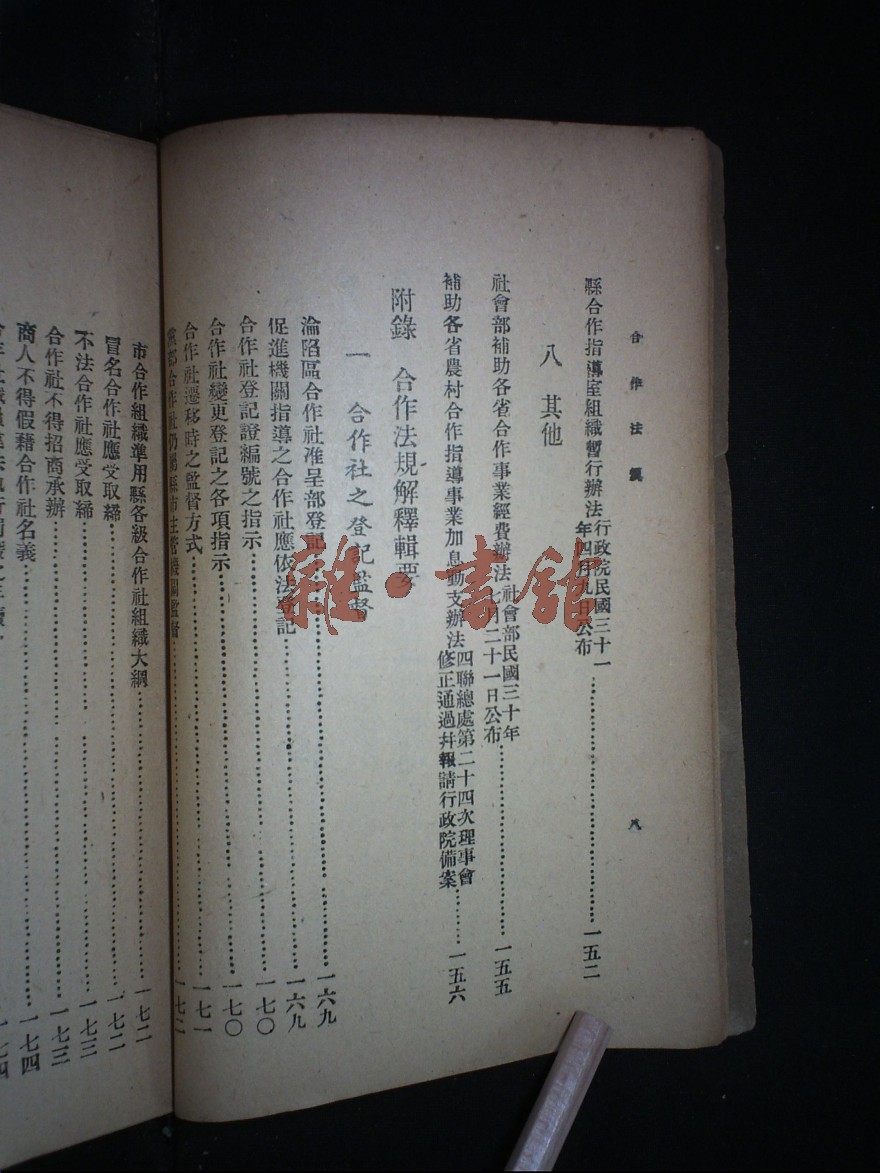 合作法規
八
縣合作指導室組織暫行辦法 行政院民國三十一年四月九日公布……一五二
八 其他
社會部補助各省合作事業經費辦法 社會部民國三十年七月二十一日公布……一五五
補助各省農村合作指導事業加息動支辦法 四聯總處第二十四次理事會修正通過幷報請行政院備案……一五六
附錄 合作法規解釋輯要
一 合作社之登記監督
淪陷區合作社准呈部登記……一六九
促進機關指導之合作社應依法登記……一六九
合作社登記證編號之指示……一七〇
合作社變更登記之各項指示……一七〇
合作社遷移時之監督方式……一七一
黨部合作社仍屬縣市主管機關監督……一七二
市合作組織準用縣各級合作社組織大綱……一七二
冒名合作社應受取締……一七二
不法合作社應受取締……一七三
合作社不得招商承辦……一七三
商人不得假藉合作社名義……一七四
一七四
雜·書館